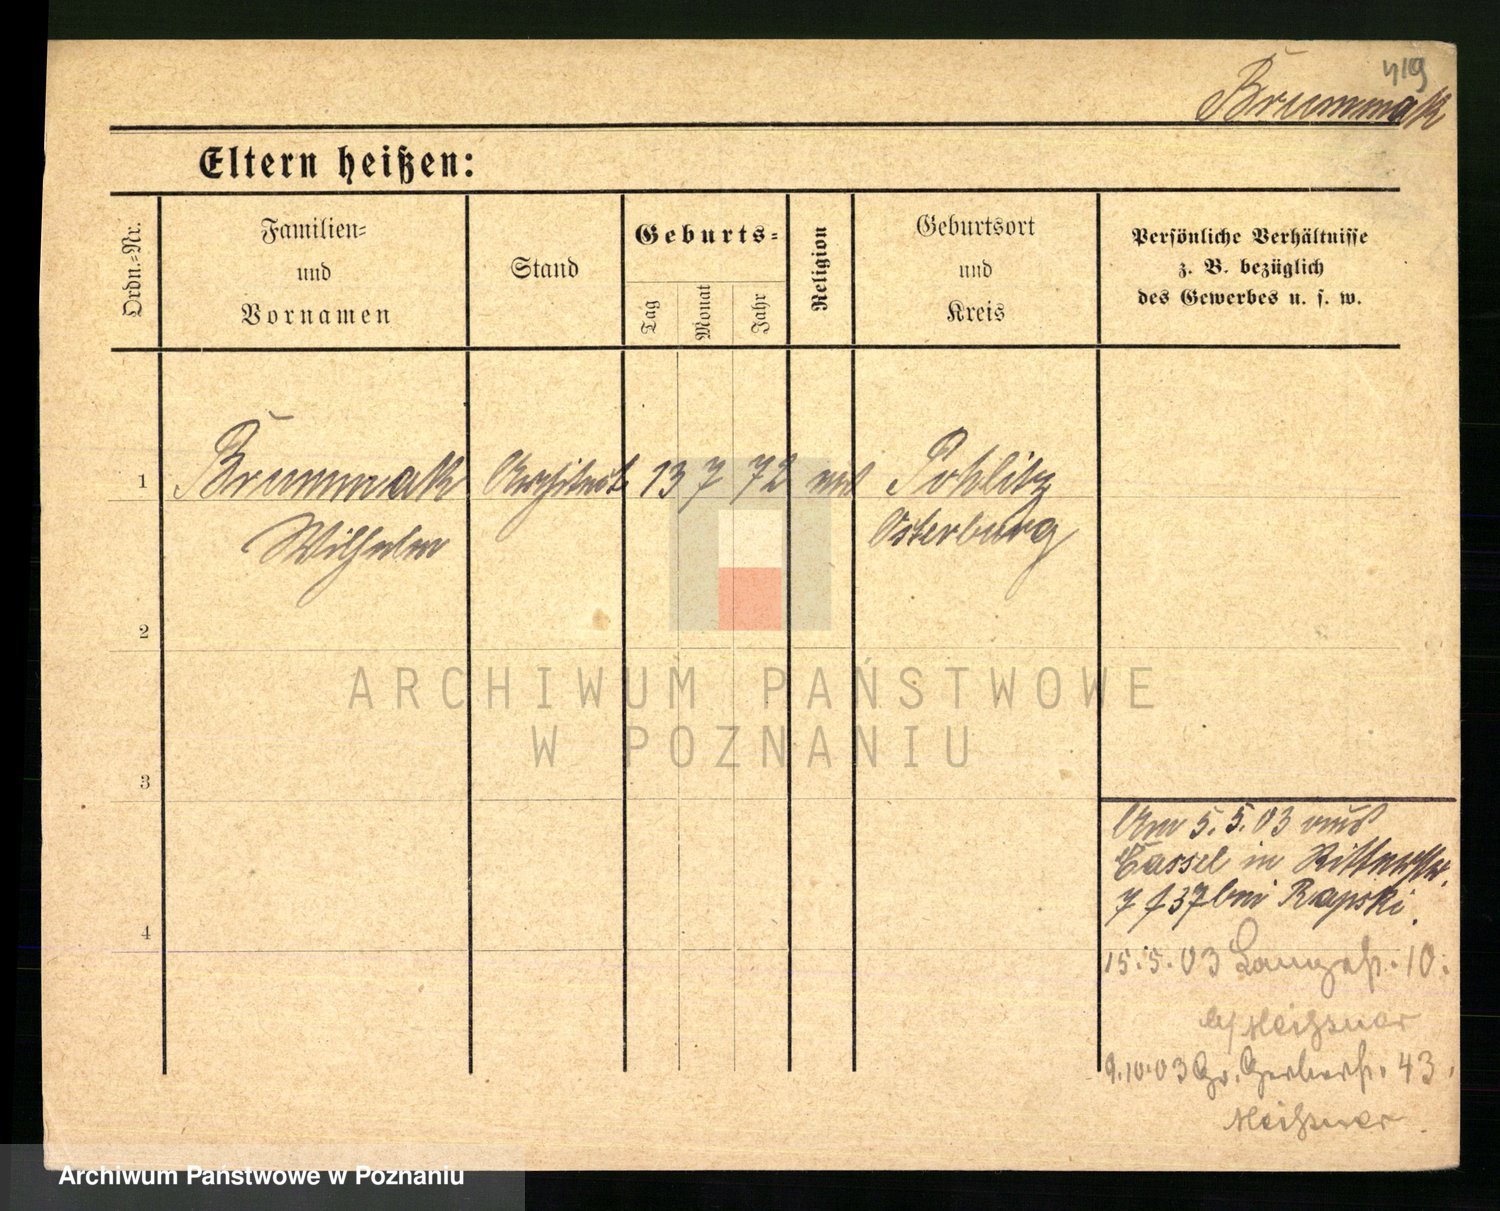 419
Brummak
Eltern heißen:
Ordn.-Nr.
Familien-
und
Vornamen
Stand
Geburts-
Tag
Monat
Jahr
Religion
Geburtsort
und
Kreis
Persönliche Verhältnisse
z. B. bezüglich
des Gewerbes u. s. w.
1
Brummak Architekt 13 7 72 Pohlitz
Wilhelm Osterburg
2
3
4
Am 5.5.03 aus
Cassel in Ritterstr.
37 bei Rapski.
15.5.03 Langestr. 10.
b/ Meißner
9.10.03 Gr. Gerberstr. 43.
Meißner.
ARCHIWUM PAŃSTWOWE
W POZNANIU
Archiwum Państwowe w Poznaniu